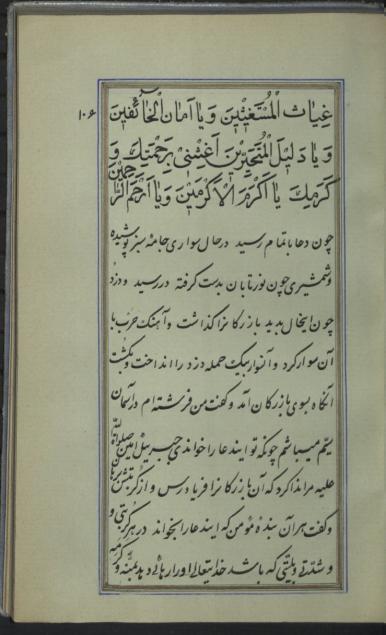 ۱۰۶
غِیٰاثَ الْمُسْتَغیٖثیٖنَ وَ یٰا اَمٰانَ الْخٰآئِفیٖنَ
وَ یٰا دَلیٖلَ الْمُتَحَیِّریٖنَ اَغِثْنیٖ بِرَحْمَتِكَ وَ
کَرَمِكَ یٰا اَکْرَمَ الْاَکْرَمیٖنَ وَ یٰا اَرْحَمَ الرّٰاحِمیٖنَ
چون دعا باتمام رسید درحال سواری جامهٔ سبز پوشیده
و شمشیری چون نور تابان بدست گرفته در رسید و دزد
چون اینحال بدید بازرکانرا کذاشت و آهنك حرب با
آن سوار کرد و آنسوار بیك حمله دزد را انداخت و بکشت
آنکاه بسوی بازرکان آمد و کفت من فرشته‌ام در آسمان
سیّم میباشم چونکه تو ایندعا را خواندی جبرییل امین صلواة اللّه
علیه مرا ندا کرد که آن بازرکانرا فریاد رس و از کربتش برهان
و کفت هر آن بندهٔ مؤمن که ایندعا را بخواند در هر کربتی و
و شدّتی و بلیّتی که باشد خدایتعالی او را رهائی دهد بمنّه و کرمه